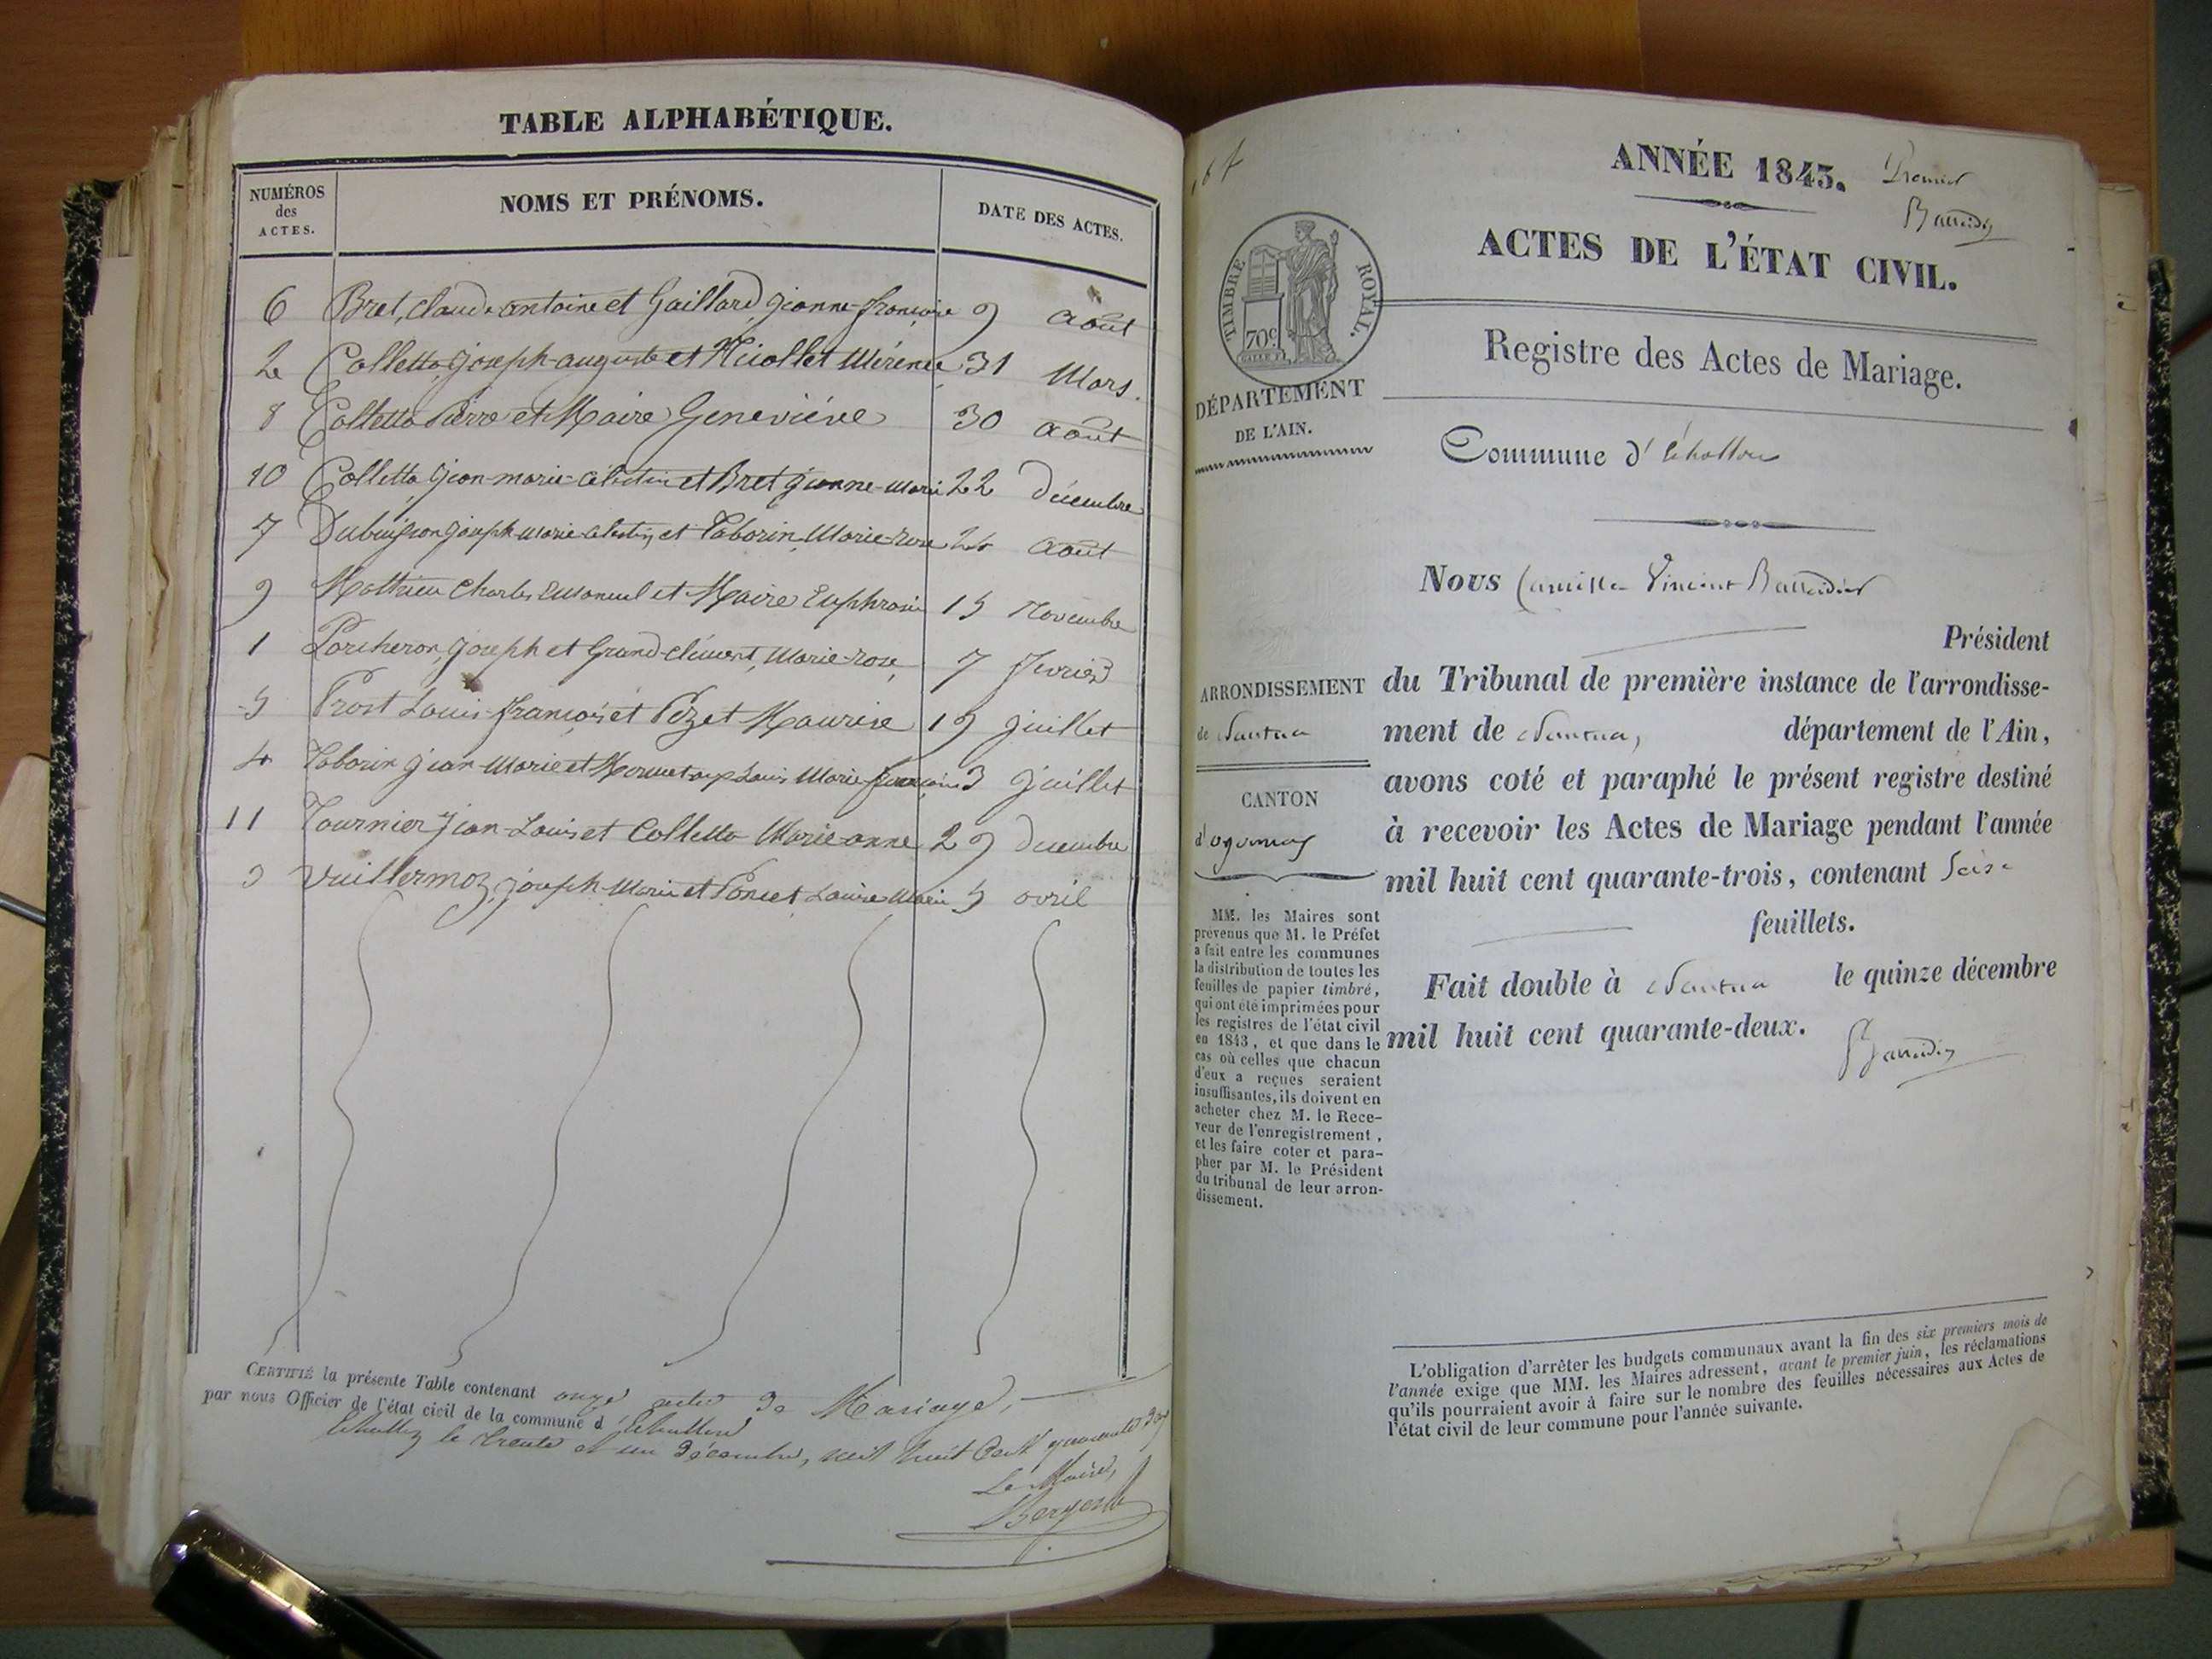 TABLE ALPHABÉTIQUE.
NUMÉROS
des
ACTES.
NOMS ET PRÉNOMS.
DATE DES ACTES.
6 Bret, Claude antoine et Gaillard, jeanne-françoise 9 août
2 Colletta, joseph-auguste et Nicollet 31 Mars.
8 Colletta Pierre et Maire Geneviéve 30 août
10 Colletta jean-marie-célestin et Bret jeanne-marie 22 décembre
7 Dubuisson joseph-marie-célestin et Taborin, Marie-rose 24 août
9 Mathieu Charles Emanuel et Maire Euphrosine 15 novembre
1 Porcheron, joseph et Grand-clément, Marie-rose, 7 fevrier
5 Prost Louis-françois et Pezet Maurise 19 juillet
4 Taborin jean-Marie et Louis Marie 3 juillet
11 Tournier jean-Louis et Colletta Marie-anne 29 decembre
3 Vuillermoz, joseph-Marie et Poncet Louise Marie 5 avril
CERTIFIÉ la présente Table contenant onze actes de Mariage,
par nous Officier de l'état civil de la commune d'Echallon
Echallon le trente et un Décembre, mil huit Cent quarante
Le Maire,
ANNÉE 1843. Premier
ACTES DE L'ÉTAT CIVIL.
TIMBRE ROYAL.
70c
Registre des Actes de Mariage.
DÉPARTEMENT
DE L'AIN.
Commune d'Echallon
Nous Camille Vincent
Président
ARRONDISSEMENT
de Nantua
CANTON
d'oyonnax
du Tribunal de première instance de l'arrondisse-
ment de Nantua, département de l'Ain,
avons coté et paraphé le présent registre destiné
à recevoir les Actes de Mariage pendant l'année
mil huit cent quarante-trois, contenant Seise
feuillets.
Fait double à Nantua le quinze décembre
mil huit cent quarante-deux.
MM. les Maires sont
prévenus que M. le Préfet
a fait entre les communes
la distribution de toutes les
feuilles de papier timbré,
qui ont été imprimées pour
les registres de l'état civil
en 1843, et que dans le
cas où celles que chacun
d'eux a reçues seraient
insuffisantes, ils doivent en
acheter chez M. le Rece-
veur de l'enregistrement,
et les faire coter et para-
pher par M. le Président
du tribunal de leur arron-
dissement.
L'obligation d'arrêter les budgets communaux avant la fin des six premiers mois de
l'année exige que MM. les Maires adressent, avant le premier juin, les réclamations
qu'ils pourraient avoir à faire sur le nombre des feuilles nécessaires aux Actes de
l'état civil de leur commune pour l'année suivante.